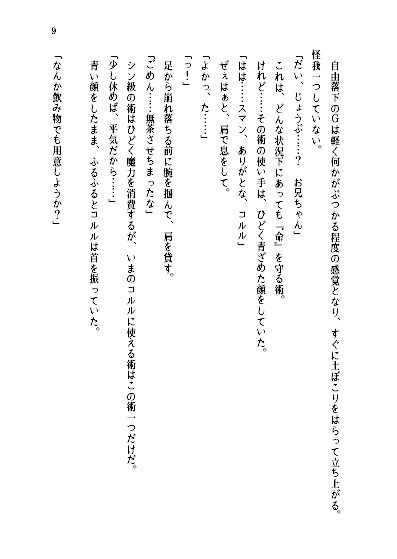 9
自由落下のGは軽く何かがぶつかる程度の感覚となり、すぐに土ぼこりをはらって立ち上がる。
怪我一つしていない。
「だい、じょうぶ……？　お兄ちゃん」
これは、どんな状況下にあっても『命』を守る術。
けれど……その術の使い手は、ひどく青ざめた顔をしていた。
「はは……スマン、ありがとな、コルル」
ぜぇはぁと、肩で息をして。
「よかっ、た……」
「っ！」
足から崩れ落ちる前に腕を掴んで、肩を貸す。
「ごめん……無茶させちまったな」
シン級の術はひどく魔力を消費するが、いまのコルルに使える術はこの術一つだけだ。
「少し休めば、平気だから……」
青い顔をしたまま、ふるふるとコルルは首を振っていた。
「なんか飲み物でも用意しようか？」